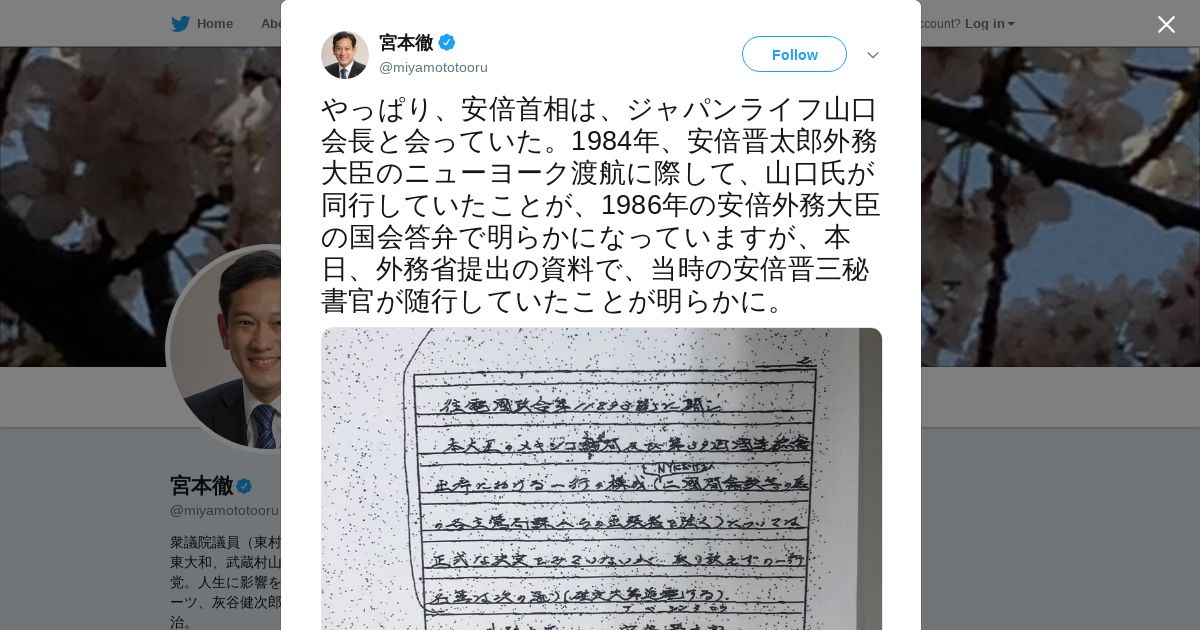 Home
count? Log in
宮本徹
@miyamototooru
Follow
やっぱり、安倍首相は、ジャパンライフ山口
会長と会っていた。1984年、安倍晋太郎外務
大臣のニューヨーク渡航に際して、山口氏が
同行していたことが、1986年の安倍外務大臣
の国会答弁で明らかになっていますが、本
日、外務省提出の資料で、当時の安倍晋三秘
書官が随行していたことが明らかに。
本大臣のメキシコ訪問及び第39回国連総会
正式な決定をみていないが、取り敢えずの一行
宮本徹
@miyamototooru
衆議院議員（東村
東大和、武蔵村山
党。人生に影響を
ーツ、灰谷健次郎
治。